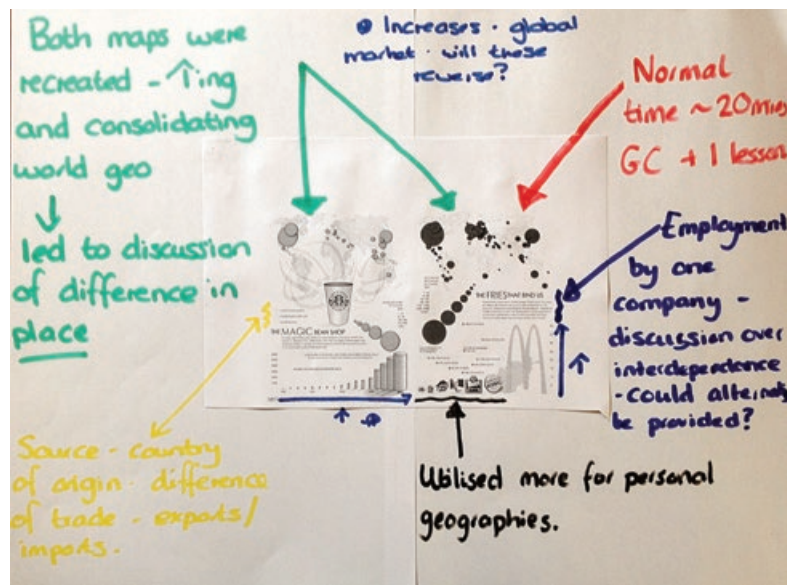 Both maps were
recreated - ↑ing
and consolidating
world geo
↓
led to discussion
of difference in
place
Increases · global
market · will these
reverse?
Normal
time ~ 20mins
GC + 1 lesson
Employment
by one
company -
discussion over
interdependence
- could
be provided?
THE MAGIC BEAN SHOP
THE FRIES THAT BIND US
Source - country
of origin · difference
of trade - exports/
imports.
Utilised more for personal
geographies.